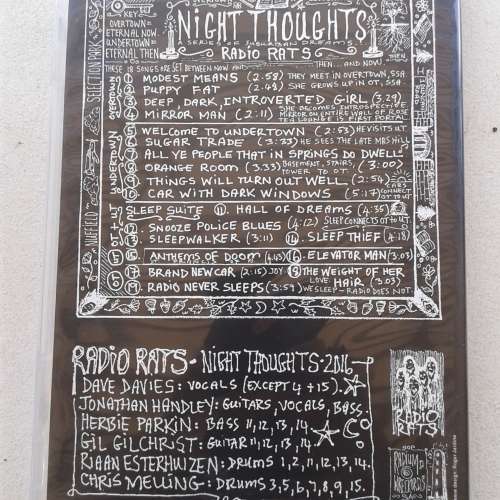 KEY
OVERTOWN=
ETERNAL NOW.
UNDERTOWN=
ETERNAL THEN
NIGHT THOUGHTS
SERIES OF SUBURBAN DREAMS
RADIO RATS
THESE 18 SONGS ARE SET BETWEEN NOW AND THEN... AND NOW)
1 MODEST MEANS (2:58) THEY MEET IN OVERTOWN, SSA.
2 PUPPY FAT (2:48) SHE GROWS UP IN OT, SSA.
3 DEEP, DARK, INTROVERTED GIRL (3:29)
4 MIRROR MAN (2:11) SHE BECOMES INTROSPECTIVE
MIRROR ON ENTIRE WALL OF ROSE
TEA LOUNGE IS FIRST PORTAL
5 WELCOME TO UNDERTOWN (2:53) HE VISITS UT.
6 SUGAR TRADE (3:23) HE SEES THE LATE MRS HILL
7 ALL YE PEOPLE THAT IN SPRINGS DO DWELL
8 ORANGE ROOM (3:33) BASEMENT, STAIRS, (3:00)
TOWER TO OT.
9 THINGS WILL TURN OUT WELL (2:54)
10 CAR WITH DARK WINDOWS (5:17) CARS CONNECT OT TO UT.
SLEEP SUITE 11 HALL OF DREAMS (4:35)
12. SNOOZE POLICE BLUES (4:12) SLEEP CONNECTS OT TO UT.
13. SLEEPWALKER (3:11) 14. SLEEP THIEF (4:18)
15. ANTHEMS OF DOOM (4:43) 16. ELEVATOR MAN (3:03)
17 BRAND NEW CAR (2:15) JOY 18 THE WEIGHT OF HER
LOVE. HAIR (3:03)
19 RADIO NEVER SLEEPS (3:59) WE SLEEP - RADIO DOES NOT.
SELECTION PARK
OVERTOWN
UNDERTOWN
NUFIELD
RADIO RATS - NIGHT THOUGHTS - 2016
DAVE DAVIES: VOCALS (EXCEPT 4 + 15).
JONATHAN HANDLEY: GUITARS, VOCALS, BASS.
HERBIE PARKIN: BASS 11, 12, 13, 14.
GIL GILCHRIST: GUITAR 11, 12, 13, 14.
RIAAN ESTERHUIZEN: DRUMS 1, 2, 11, 12, 13, 14.
CHRIS MELLING: DRUMS 3, 5, 6, 7, 8, 9, 15.
RADIO
RATS
RECORDS
design: Roger Jardine